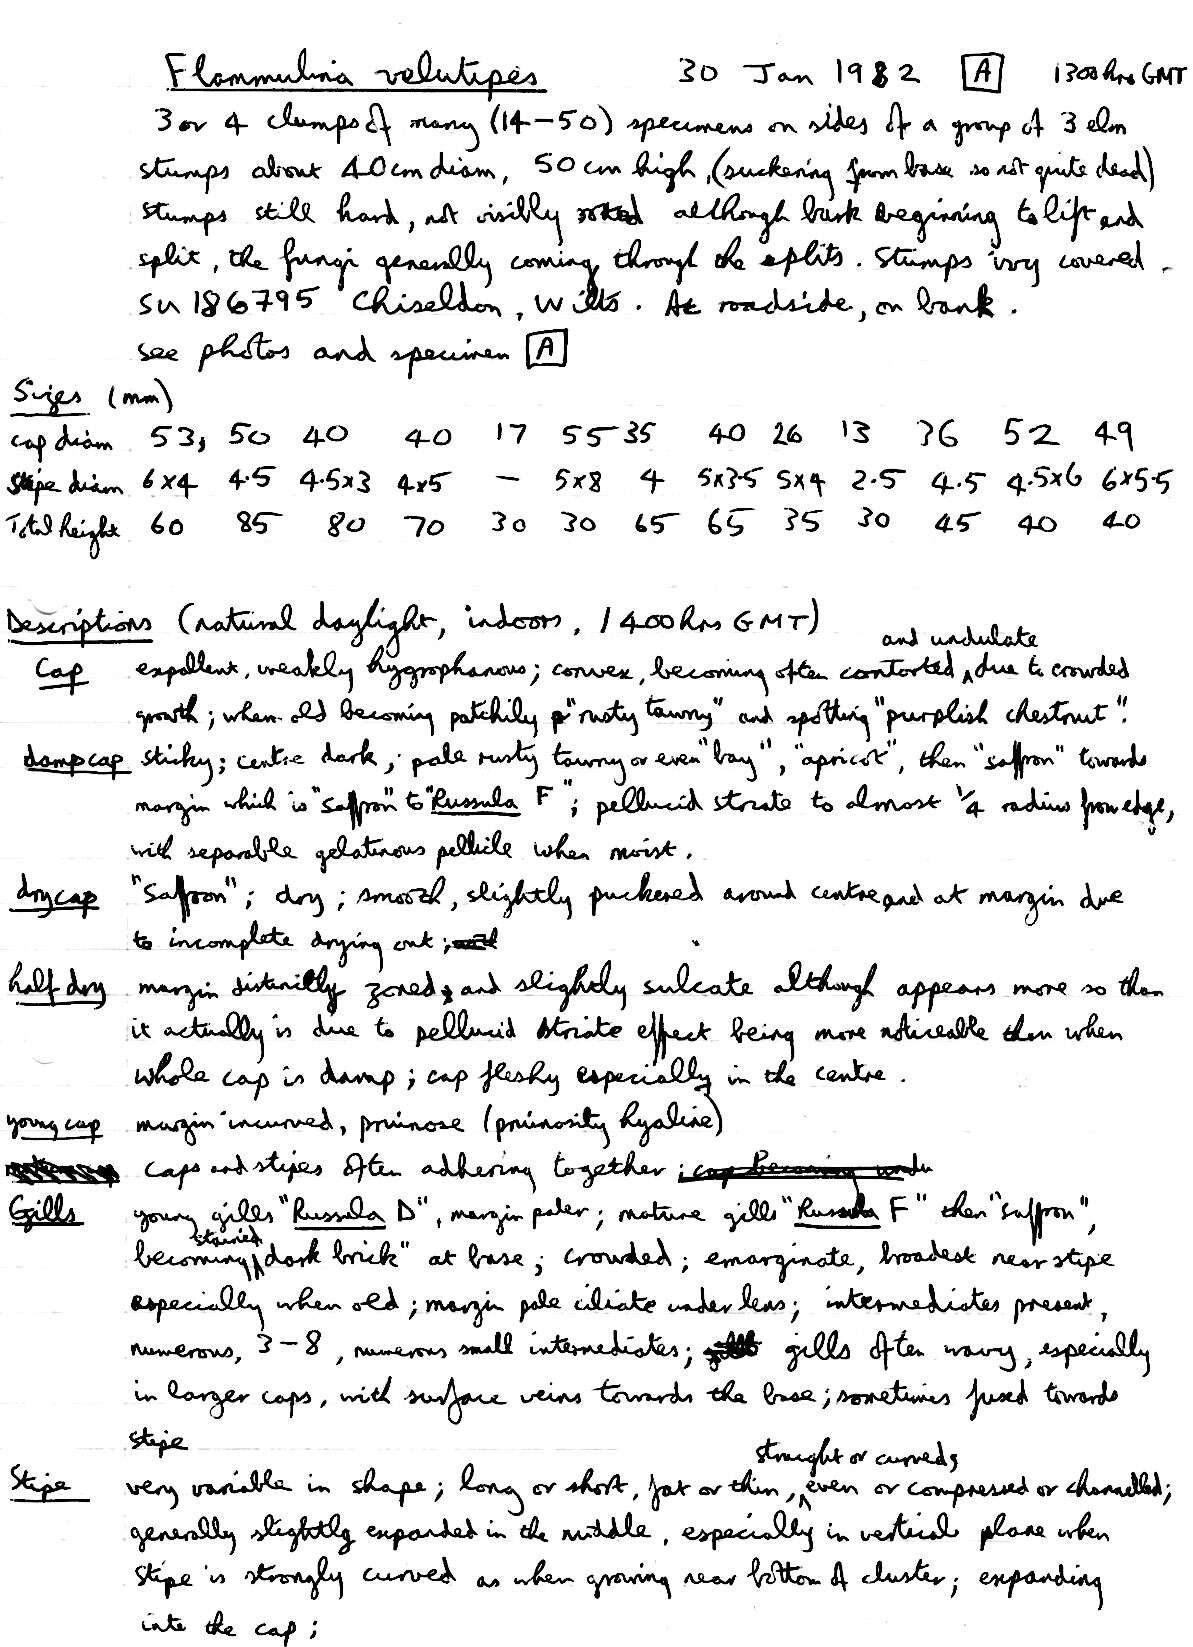 Flammulina velutipes 30 Jan 1982 A 1300hrs GMT
3 or 4 clumps of many (14-50) specimens on sides of a group of 3 elm
stumps about 40cm diam, 50cm high, (suckering from base so not quite dead)
stumps still hard, not visibly rotted although bark beginning to lift and
split, the fungi generally coming through the splits. Stumps ivy covered.
SU 186795 Chiseldon, Wilts. At roadside, on bank.
see photos and specimen A
Sizes (mm)
cap diam 53, 50 40 40 17 55 35 40 26 13 36 52 49
Stipe diam 6x4 4.5 4.5x3 4x5 - 5x8 4 5x3.5 5x4 2.5 4.5 4.5x6 6x5.5
Total height 60 85 80 70 30 30 65 65 35 30 45 40 40
Descriptions (natural daylight, indoors, 1400hrs GMT)
and undulate
Cap expallent, weakly hygrophanous; convex, becoming often contorted, due to crowded
growth; when old becoming patchily "rusty tawny" and spotting "purplish chestnut".
damp cap sticky; centre dark, pale rusty tawny or even "bay", "apricot", then "saffron" towards
margin which is "saffron" to "Russula F"; pellucid striate to almost 1/4 radius from edge,
with separable gelatinous pellicle when moist.
dry cap "Saffron"; dry; smooth, slightly puckered around centre and at margin due
to incomplete drying out;
half dry margin distinctly zoned, and slightly sulcate although appears more so than
it actually is due to pellucid striate effect being more noticeable than when
whole cap is damp; cap fleshy especially in the centre.
young cap margin incurved, pruinose (pruinosity hyaline)
caps and stipes often adhering together; cap becoming undu
Gills young gills "Russula D", margin paler; mature gills "Russula F" then "saffron",
stained
becoming dark brick" at base; crowded; emarginate, broadest near stipe
especially when old; margin pale ciliate under lens; intermediates present,
numerous, 3-8, numerous small intermediates; gills often wavy, especially
in larger caps, with surface veins towards the base; sometimes fused towards
stipe
straight or curved,
Stipe very variable in shape; long or short, fat or thin, even or compressed or channelled;
generally slightly expanded in the middle, especially in vertical plane when
stipe is strongly curved as when growing near bottom of cluster; expanding
into the cap;